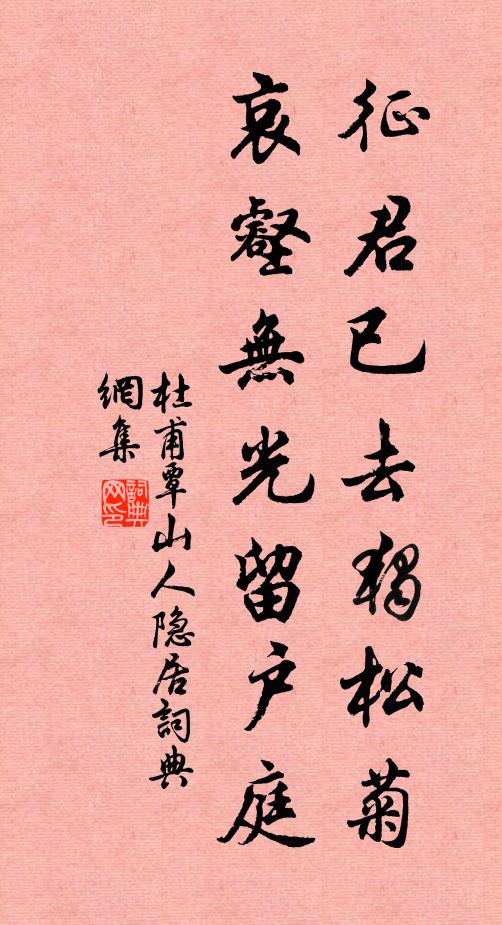 征君已去獨松菊
哀壑無光留户庭
杜甫覃山人隐居詞典
網集
詞典
网印